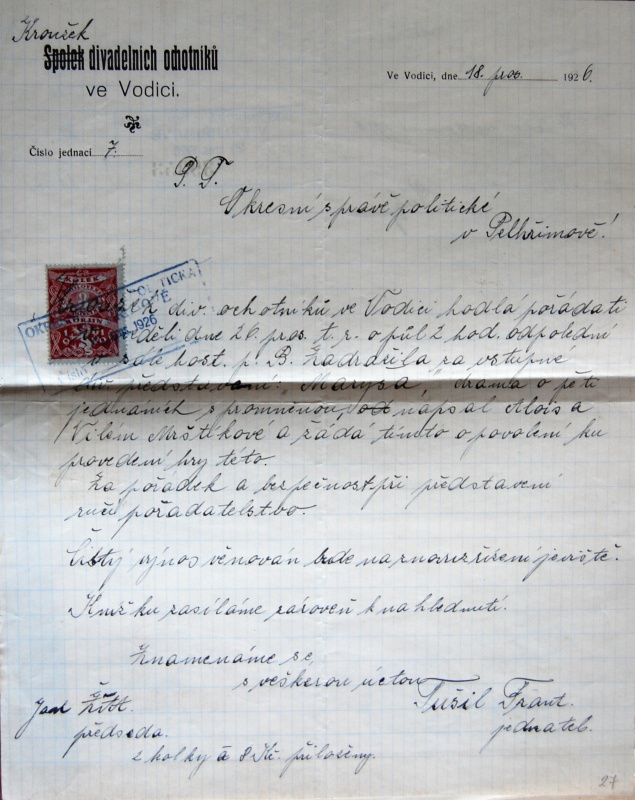 Kroužek
Spolek divadelních ochotníků
ve Vodici.
Ve Vodici, dne 18. pros. 1926.
Číslo jednací 7.
P. T.
Okresní správě politické
v Pelhřimově!
Kroužek div. ochotníků ve Vodici hodlá pořádati
neděli dne 26. pros. t. r. o půl 2 hod. odpolední
v sále host. p. B. Zadražila za vstupné
představení: „Maryša„ drama o pěti
jednáních s proměnou od napsal Alois a
Vilém Mrštíkové a žádá tímto o povolení ku
provedení hry této.
Za pořádek a bezpečnost při představení
ručí pořadatelstvo.
Čistý výnos věnován bude na jeviště.
Knížku zasíláme zároveň k nahlednutí.
Znamenáme se,
s veškerou úctou
Tušil Frant.
jednatel.
předseda.
2 kolky à 8 Kč. přiloženy.
27